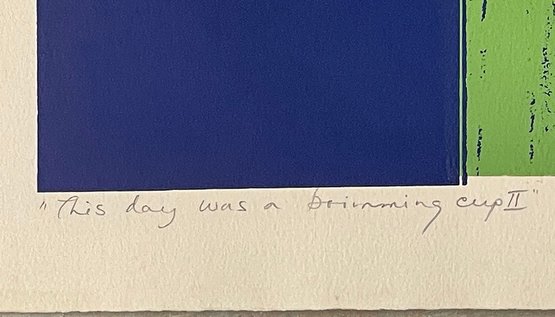 "This day was a brimming cup II"